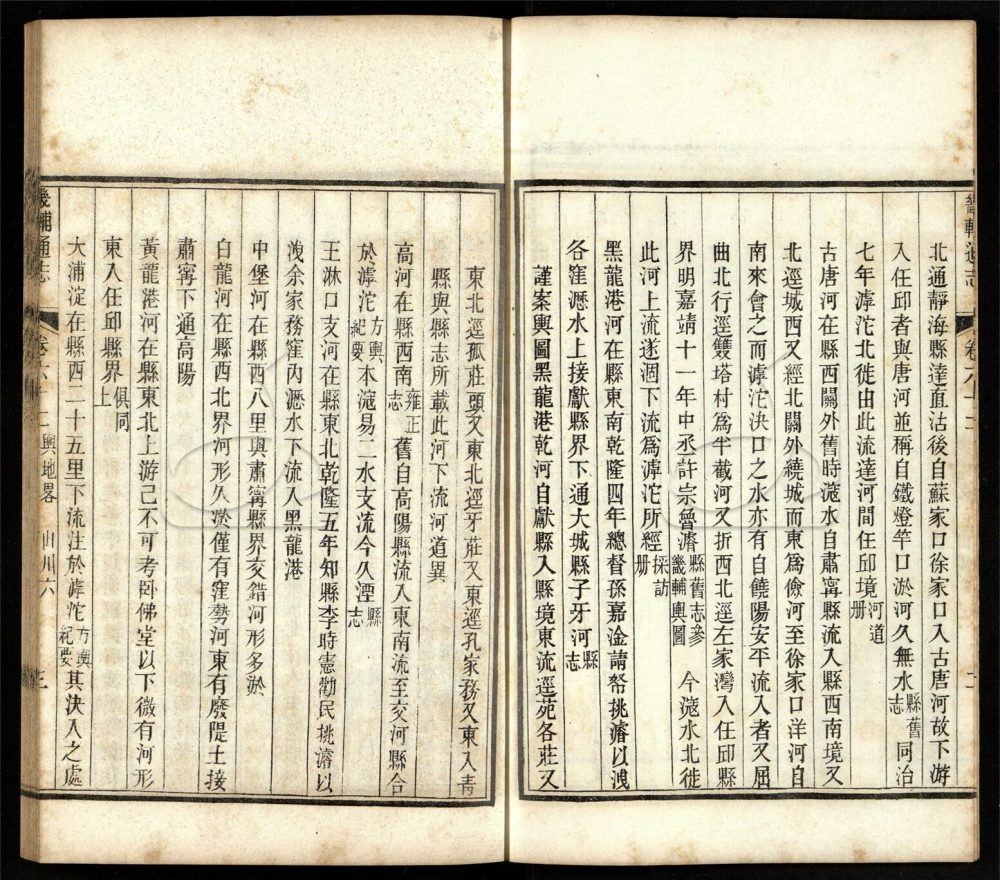 畿輔通志
卷六十二
北通靜海縣達直沽後自蘇家口徐家口入古唐河故下游
入任邱者與唐河並稱自鐵燈竿口淤河久無水縣舊志同治
七年滹沱北徙由此流達河間任邱境河道册
古唐河在縣西關外舊時滱水自肅甯縣流入縣西南境又
北逕城西又經北關外繞城而東爲儉河至徐家口洋河自
南來會之而滹沱決口之水亦有自饒陽安平流入者又屈
曲北行逕雙塔村爲半截河又折西北逕左家灣入任邱縣
界明嘉靖十一年中丞許宗魯濬縣舊志參畿輔輿圖今滱水北徙
此河上流遂涸下流爲滹沱所經採訪册
黑龍港河在縣東南乾隆四年總督孫嘉淦請帑挑濬以洩
各窪瀝水上接獻縣界下通大城縣子牙河縣志
謹案輿圖黑龍港乾河自獻縣入縣境東流逕苑各莊又
東北逕孤莊頭又東北逕牙莊又東逕孔家務又東入青
縣與縣志所載此河下流河道異
高河在縣西南雍正志舊自高陽縣流入東南流至交河縣合
於滹沱方輿紀要本滱易二水支流今久湮縣志
王淋口支河在縣東北乾隆五年知縣李時憲勸民挑濬以
洩余家務窪內瀝水下流入黑龍港
中堡河在縣西八里與肅甯縣界交錯河形多淤
白龍河在縣西北界河形久淤僅有窪勢河東有廢隄土接
肅甯下通高陽
黃龍港河在縣東北上游己不可考卧佛堂以下微有河形
東入任邱縣界俱同上
大浦淀在縣西二十五里下流注於滹沱方輿紀要其決入之處
畿輔通志
卷六十二
輿地畧
山川六
三